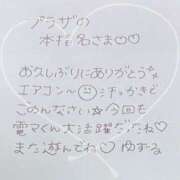 プラザの
本指名さま♡♡
お久しぶりにありがとう
エアコン〜 汗っかきで
ごめんなさい☆今回も
電マくん大活躍だったね♡
また遊んでね♡ ゆずる